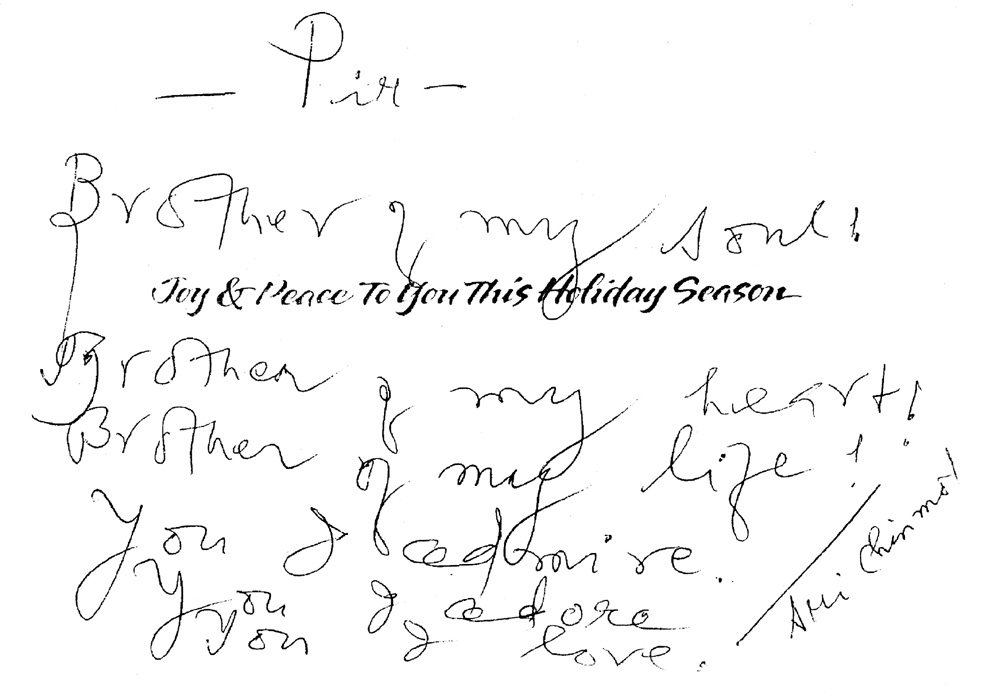 — Pir —
Brother of my soul!
Joy & Peace To You This Holiday Season
Brother of my heart!
Brother of my life!
You I admire.
You I adore
You I love.
Sri Chinmoy